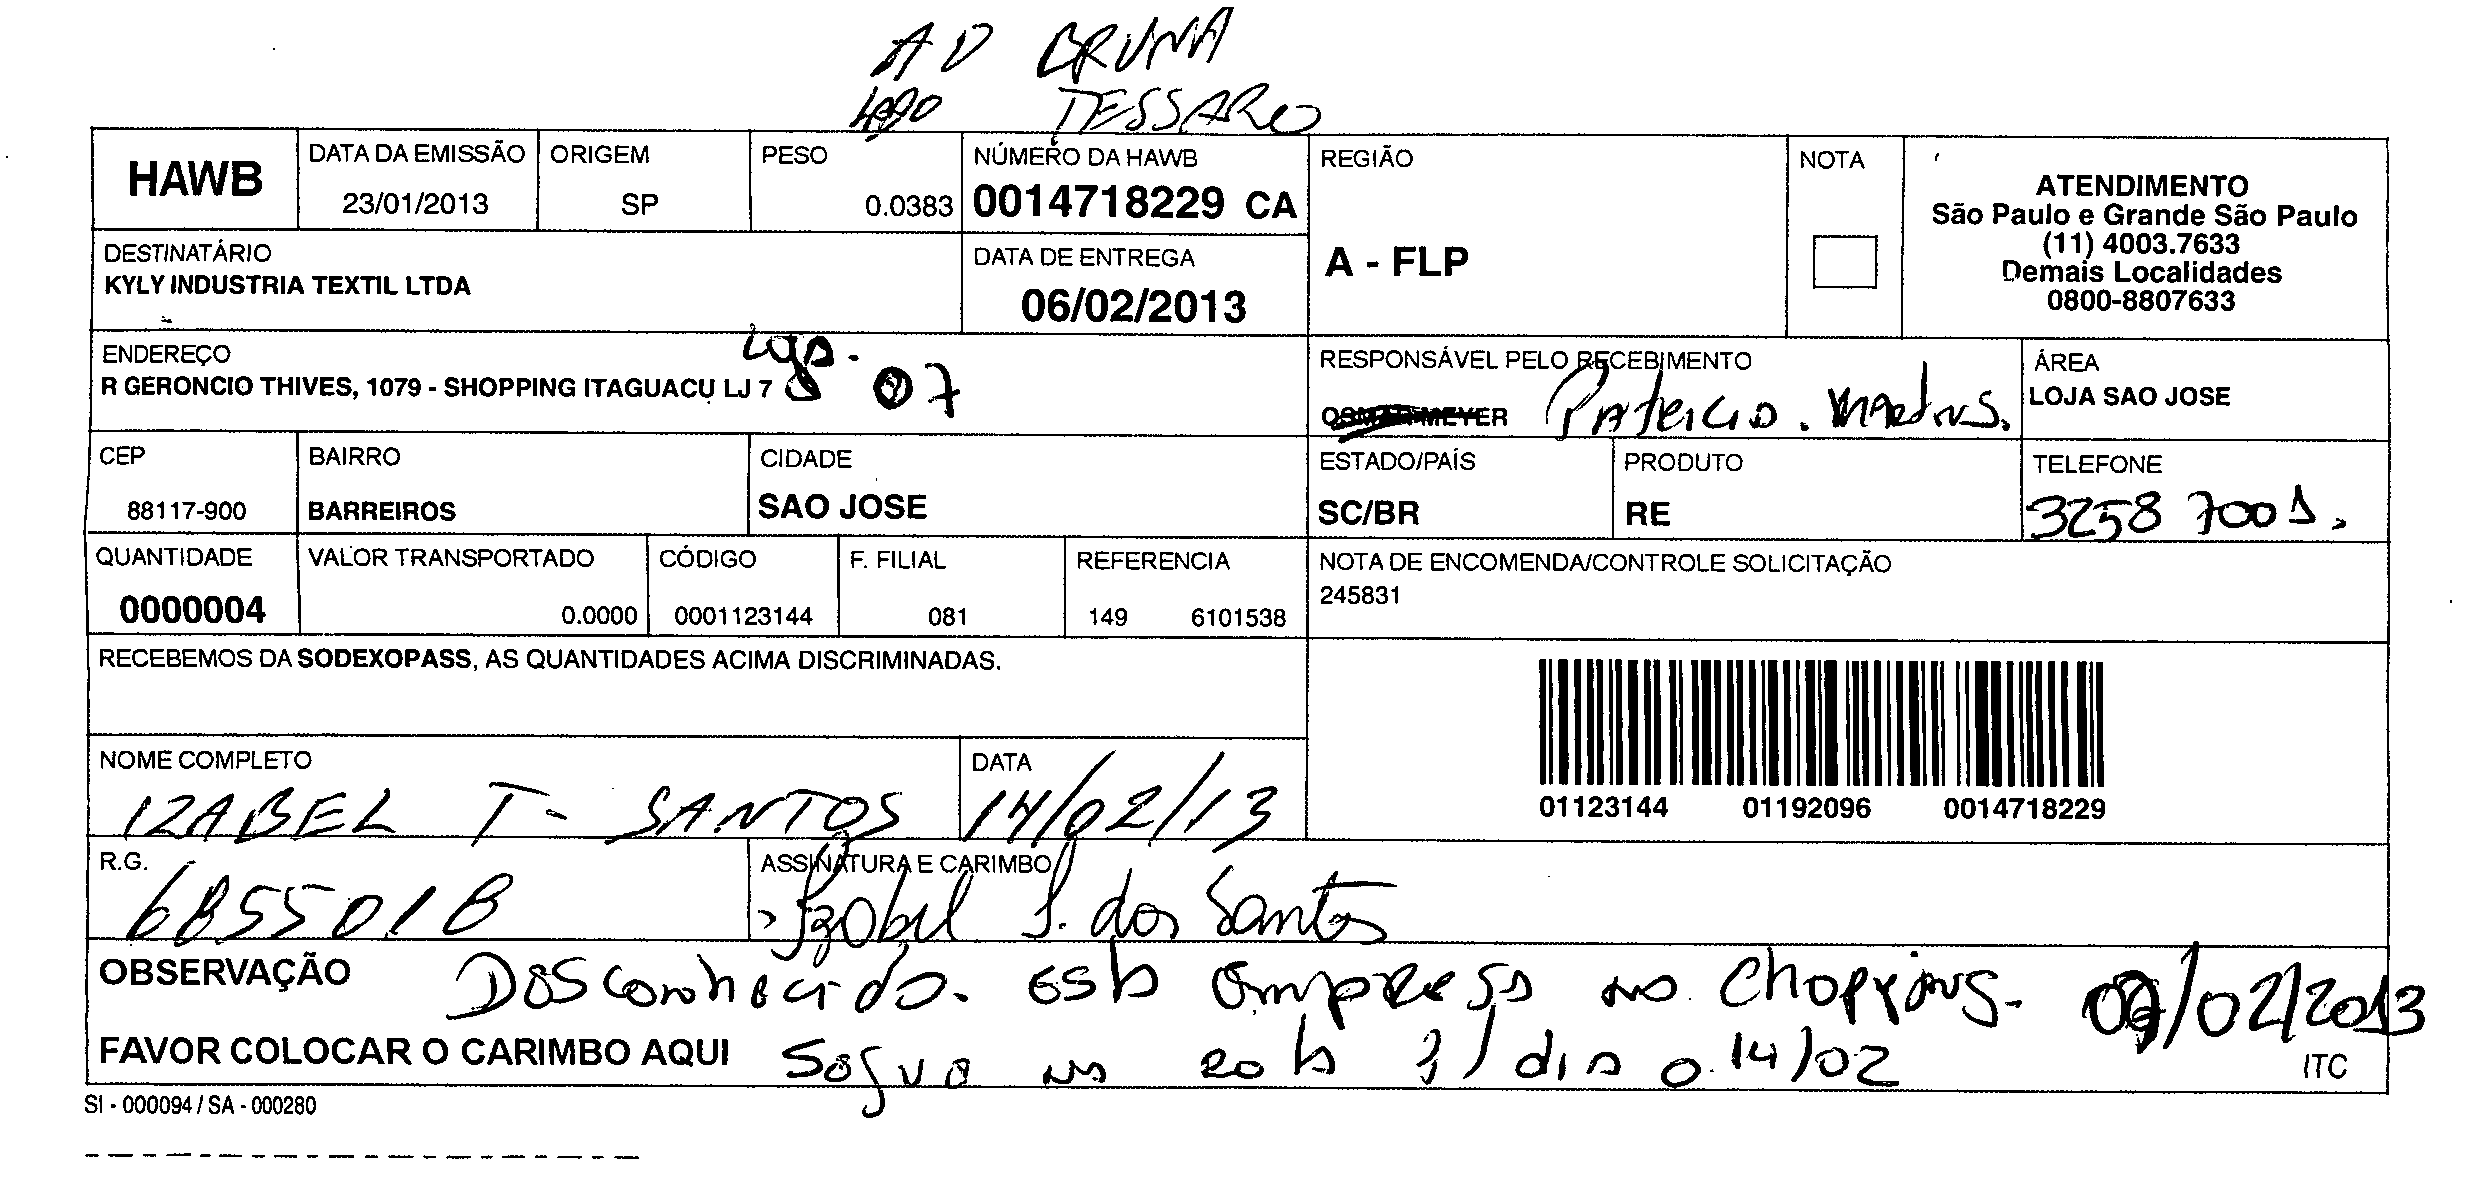 AD BRUNA
TESSARO
HAWB
DATA DA EMISSÃO
23/01/2013
ORIGEM
SP
PESO
0.0383
NÚMERO DA HAWB
0014718229 CA
REGIÃO
A - FLP
NOTA
ATENDIMENTO
São Paulo e Grande São Paulo
(11) 4003.7633
Demais Localidades
0800-8807633
DESTINATÁRIO
KYLY INDUSTRIA TEXTIL LTDA
DATA DE ENTREGA
06/02/2013
ENDEREÇO
R GERONCIO THIVES, 1079 - SHOPPING ITAGUACU LJ 7
07
RESPONSÁVEL PELO RECEBIMENTO
MEYER Patricio. Martins.
ÁREA
LOJA SAO JOSE
CEP
88117-900
BAIRRO
BARREIROS
CIDADE
SAO JOSE
ESTADO/PAÍS
SC/BR
PRODUTO
RE
TELEFONE
3258 7001.
QUANTIDADE
0000004
VALOR TRANSPORTADO
0.0000
CÓDIGO
0001123144
F. FILIAL
081
REFERENCIA
149 6101538
NOTA DE ENCOMENDA/CONTROLE SOLICITAÇÃO
245831
RECEBEMOS DA SODEXOPASS, AS QUANTIDADES ACIMA DISCRIMINADAS.
01123144 01192096 0014718229
NOME COMPLETO
IZABEL T- SANTOS
DATA
14/02/13
R.G.
6855018
ASSINATURA E CARIMBO
Izabel T. dos Santos
OBSERVAÇÃO
Desconhecido. esta empresa no Chopping. 07/02/2013
FAVOR COLOCAR O CARIMBO AQUI
Segue na rota dia 14/02
ITC
SI - 000094 / SA - 000280